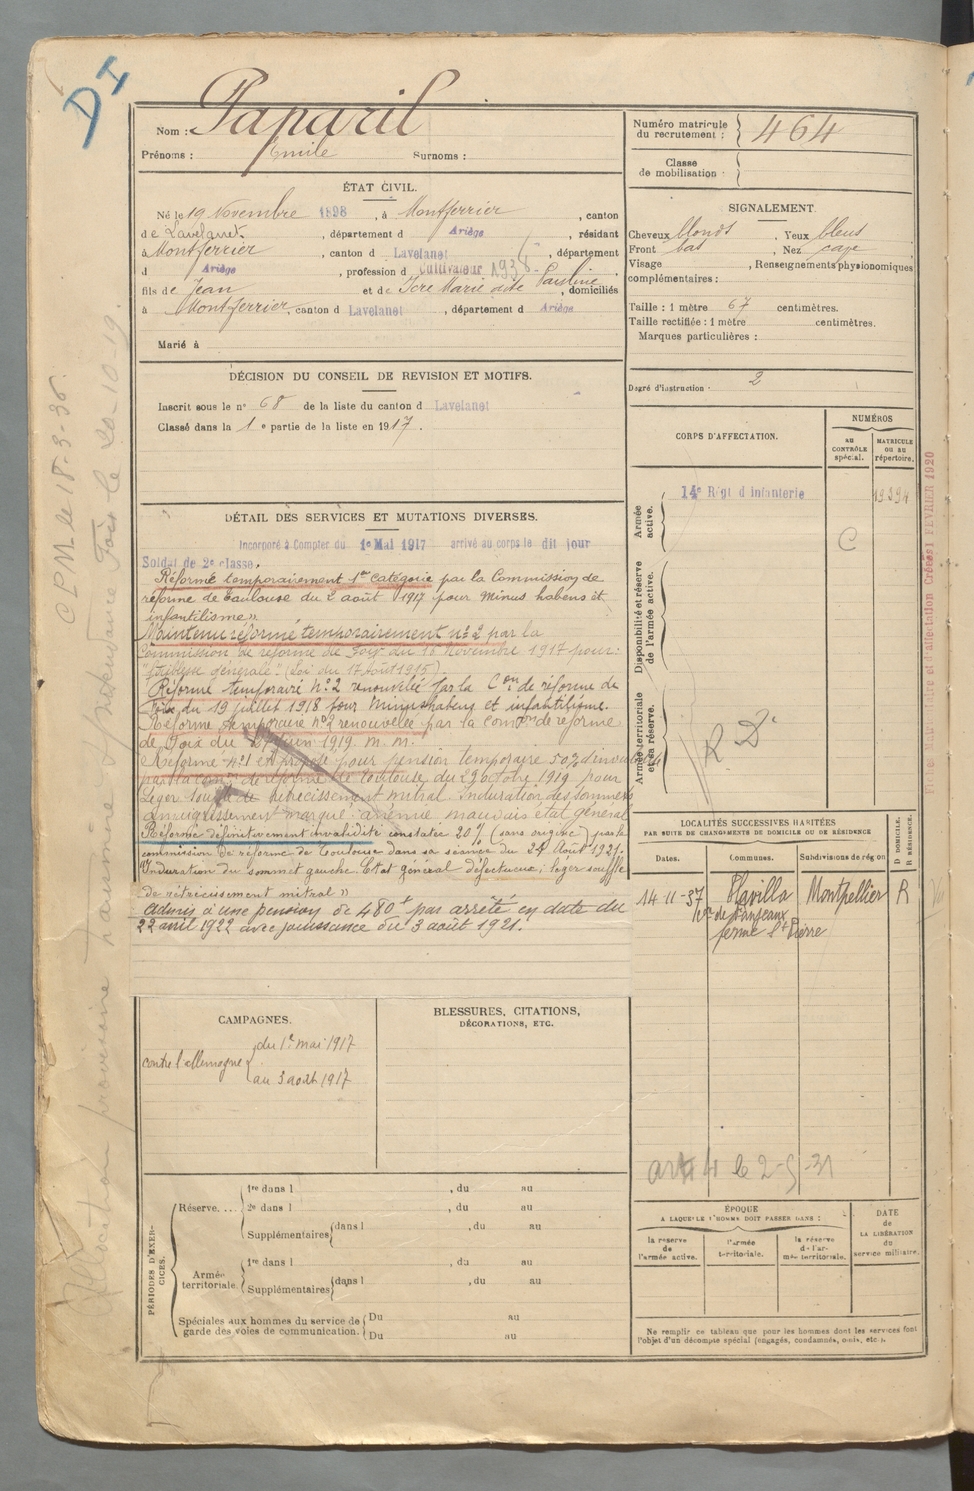 DI
Nom : Paparil
Prénoms : Emile Surnoms :
Numéro matricule du recrutement : 464
Classe de mobilisation :
ÉTAT CIVIL.
Né le 19 Novembre 1898, à Montferrier, canton
de Lavelanet, département d Ariège, résidant
à Montferrier, canton d Lavelanet, département
d Ariège, profession d Cultivateur
fils de Jean et de Marie dite Pauline, domiciliés
à Montferrier, canton d Lavelanet, département d Ariège
Marié à
SIGNALEMENT.
Cheveux blonds, Yeux bleus
Front bas, Nez cave
Visage , Renseignements physionomiques
complémentaires :
Taille : 1 mètre 67 centimètres.
Taille rectifiée : 1 mètre centimètres.
Marques particulières :
Degré d'instruction 2
DÉCISION DU CONSEIL DE REVISION ET MOTIFS.
Inscrit sous le n° 68 de la liste du canton d Lavelanet
Classé dans la 1e partie de la liste en 1917.
DÉTAIL DES SERVICES ET MUTATIONS DIVERSES.
Incorporé à Compter du 1e Mai 1917 arrivé au corps le dit jour
Soldat de 2e classe.
Réformé temporairement 1ere catégorie par la Commission de
réforme de Toulouse du 2 août 1917 pour minus habens et
infantilisme».
Maintenu réformé temporairement n° 2 par la
Commission de réforme de Foix du 16 Novembre 1917 pour :
"faiblesse générale". (Loi du 17 Août 1915).
Réforme temporaire N°2 renouvelée par la Con de réforme de
Foix du 19 juillet 1918 pour Minus habens et infantilisme.
Réforme temporaire n°2 renouvelée par la Comon de réforme
de Foix du 27 juin 1919. m. m.
Réformé n°1 et proposé pour pension temporaire 50% d'invalidité
par la com de réforme de Toulouse du 29 octobre 1919 pour
Léger souffle de rétrécissement mitral. Induration des sommets
amaigrissement marqué, anémie mauvais état général
Réformé définitivement invalidité constatée 20% (sans origine) par la
commission de réforme de Toulouse dans sa séance du 24 Août 1921.
"Induration du sommet gauche. Etat général défectueux ; léger souffle
de rétrécissement mitral »
Admis à une pension de 480f par arrêté en date du
22 avril 1922 avec jouissance du 3 août 1921.
CORPS D'AFFECTATION.
NUMÉROS
AU CONTRÔLE spécial.
MATRICULE OU AU répertoire.
Armée active.
14e Régt d infanterie
C
Disponibilité et réserve de l'armée active.
Armée territoriale et sa réserve.
R D
LOCALITÉS SUCCESSIVES HABITÉES
PAR SUITE DE CHANGEMENTS DE DOMICILE OU DE RÉSIDENCE
Dates. Communes. Subdivisions de région
D DOMICILE. R RÉSIDENCE.
14-11-37 Plavilla Montpellier R
ferme St Pierre
art 4 le 2-5-31
CAMPAGNES.
contre l'allemagne du 1er mai 1917
au 3 août 1917
BLESSURES, CITATIONS,
DÉCORATIONS, ETC.
PÉRIODES D'EXERCICES.
Réserve....
1re dans l , du au
2e dans l , du au
Supplémentaires dans l , du au
Armée territoriale.
1re dans l , du au
Supplémentaires dans l , du au
Spéciales aux hommes du service de
garde des voies de communication.
Du au
Du au
ÉPOQUE
A LAQUELLE L'HOMME DOIT PASSER DANS :
la réserve de l'armée active.
l'armée territoriale.
la réserve de l'armée territoriale.
DATE
de
LA LIBÉRATION
du
service militaire.
Ne remplir ce tableau que pour les hommes dont les services font
l'objet d'un décompte spécial (engagés, condamnés, omis, etc.).
CPM le 18-3-36
Foix le 20-10-19